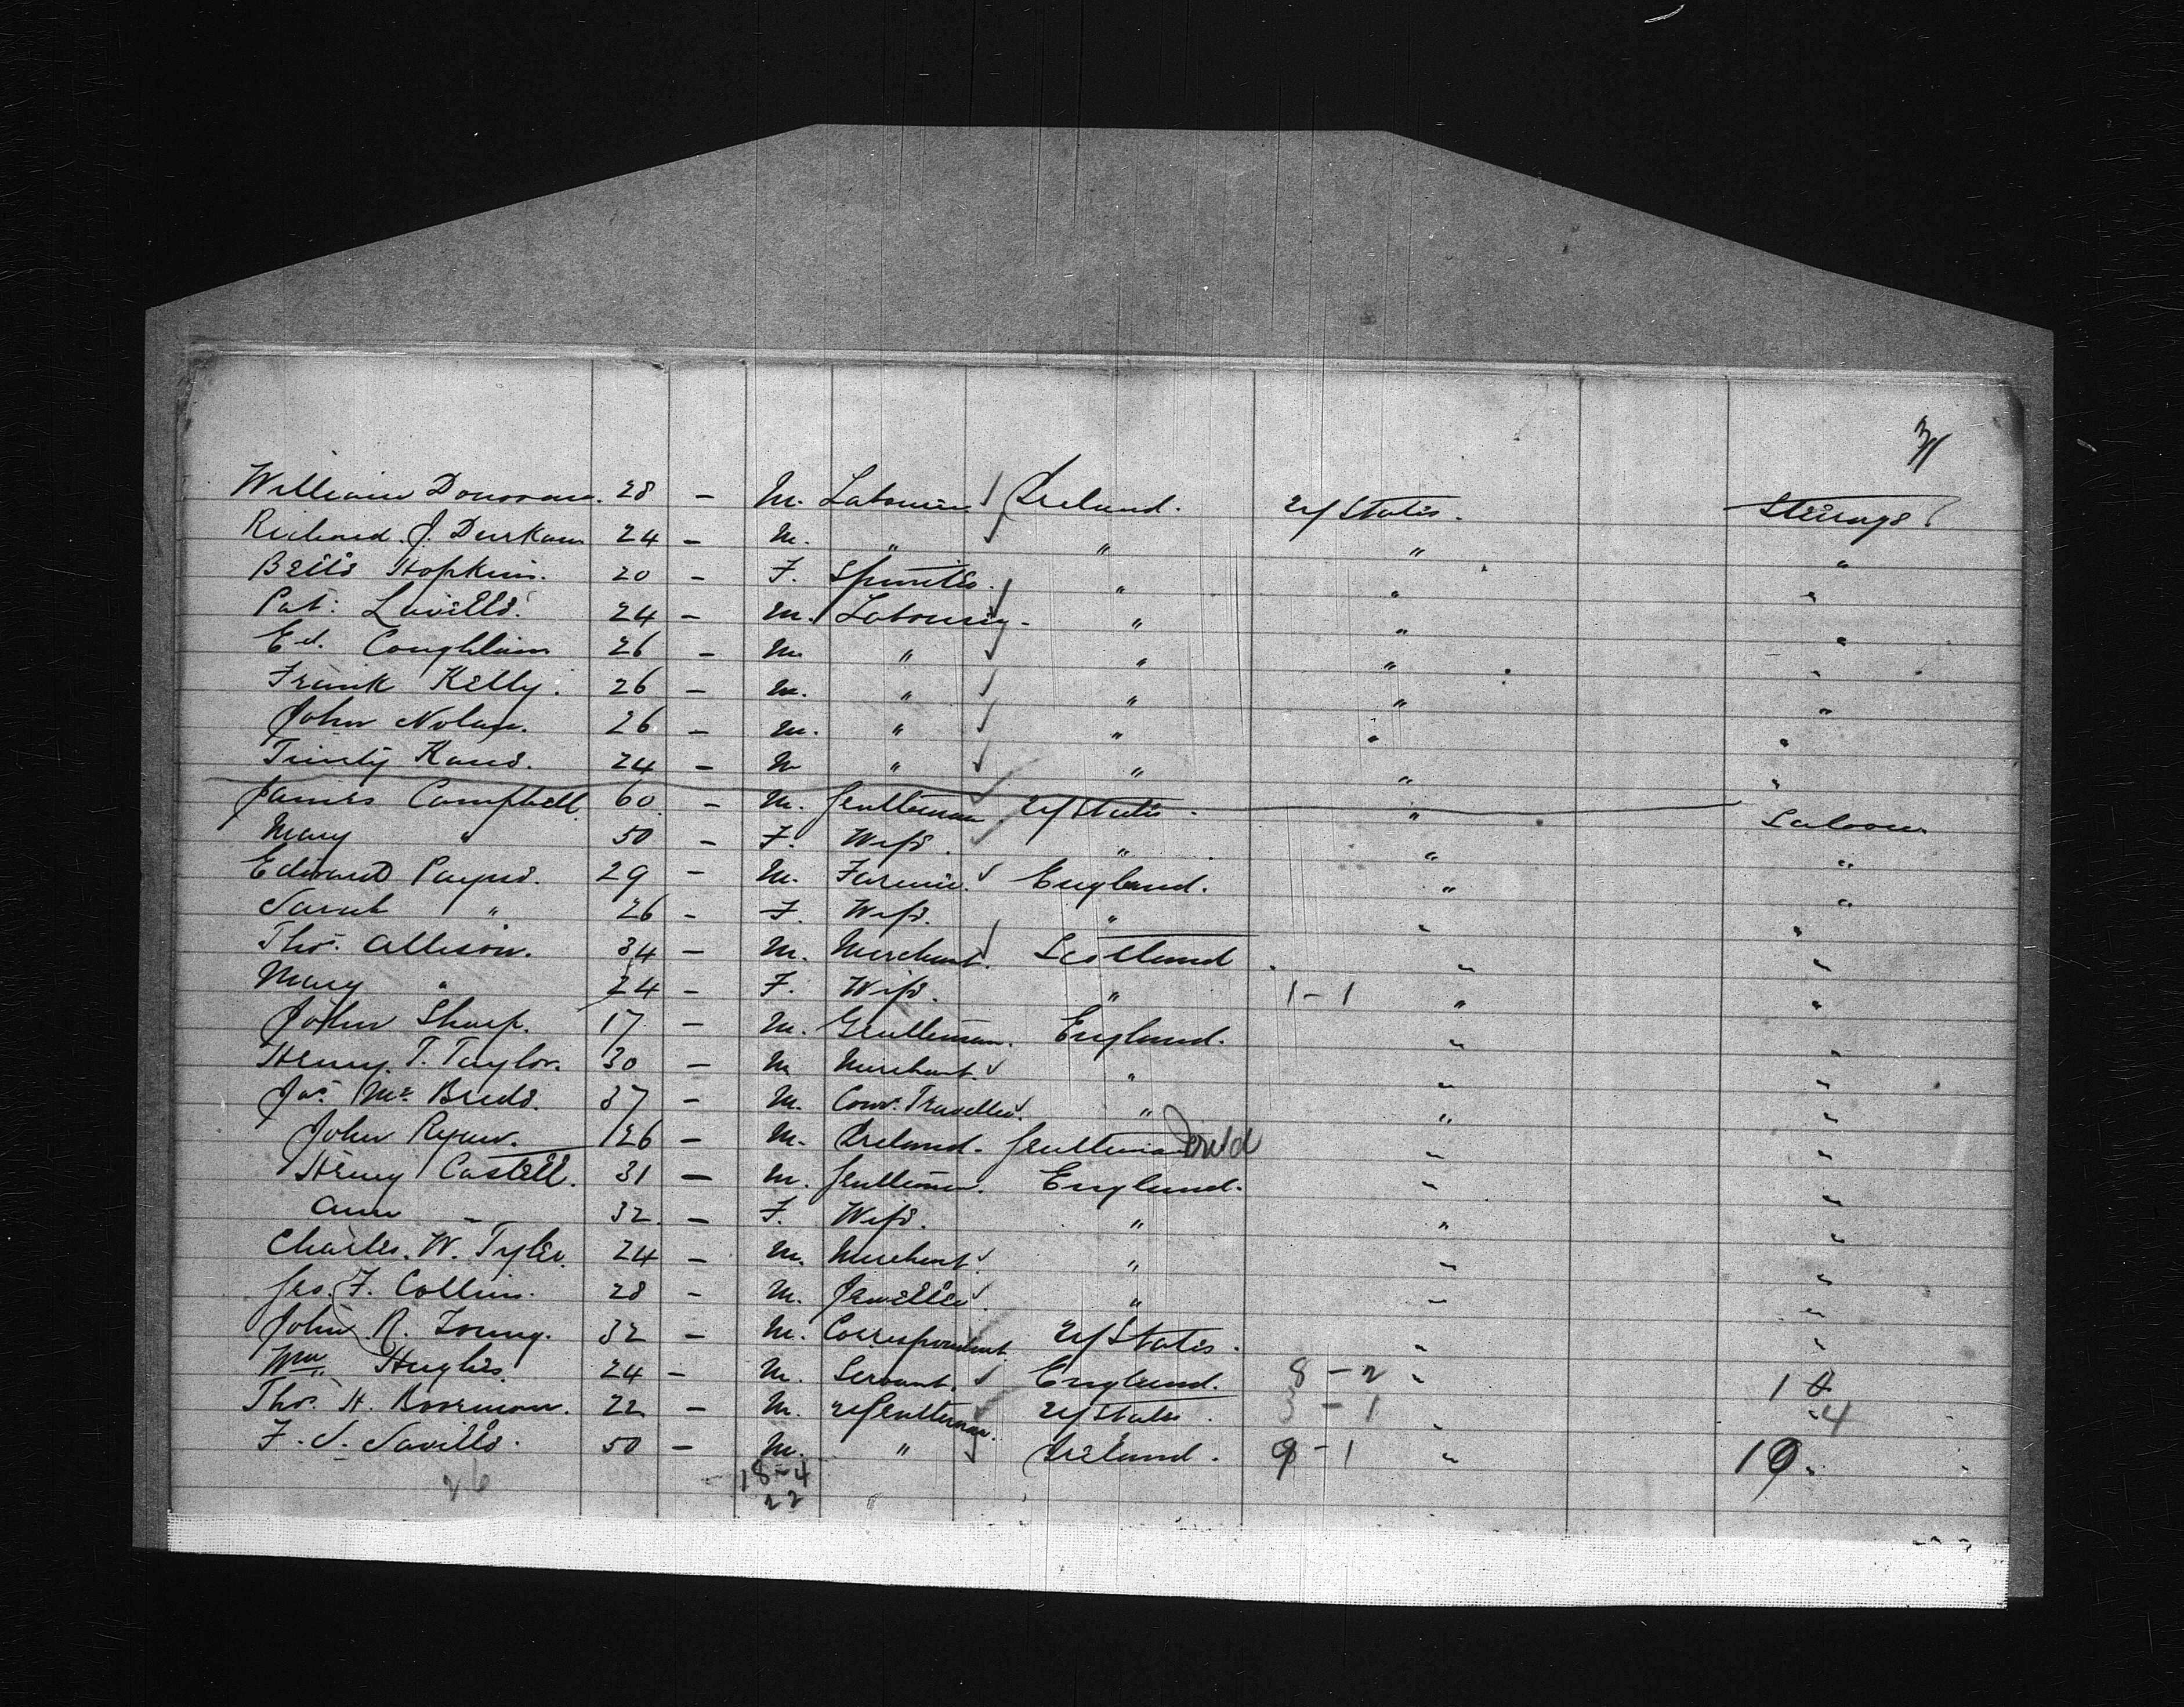 31
William Donovan. 28 - M. Labourer Ireland. U/States. Steerage
Richard J. Durkan 24 - M. " " " "
Bells Hopkins. 20 - F. Spinster. " " "
Pat: Lavelle. 24 - M. Labourer. " " "
Ed. Coughlain 26 - M. " " " "
Frank Kelly. 26 - M. " " " "
John Nolan. 26 - M. " " " "
24 - M " " " "
James Campbell 60 - M. Gentleman U/States. " Saloon
Mary " 50 - F. Wife. " " "
Edward Payne. 29 - M. Farmer. England. " "
Sarah " 26 - F. Wife. " " "
Thos. Allison. 34 - M. Merchant. Scotland. " "
Mary " 24 - F. Wife. " 1-1 " "
John Sharp. 17 - M. Gentleman. England. " "
Henry. T. Taylor. 30 - M Merchant. " " "
Jas. Mc Bride. 37 - M. Com. Traveller. " " "
John Ryan. 26 - M. Ireland. Gentleman " "
Henry Castell. 31 - M. Gentleman. England. " "
Ann " 32 - F. Wife. " " "
Charles. W. Tyler. 24 - M. Merchant. " " "
Geo. F. Collins. 28 - M. Jeweller. " " "
John R. Young. 32 - M. Correspondent. U/States. " "
Wm. Hughes. 24 - M. Servant. England. 8-2 " 18
Thos. H. Boorman. 22 - M. Gentleman. U/States. 3-1 " 4
F. S. Saville. 50 - M. " Ireland. 9-1 " 19.
26 18-4
22 "